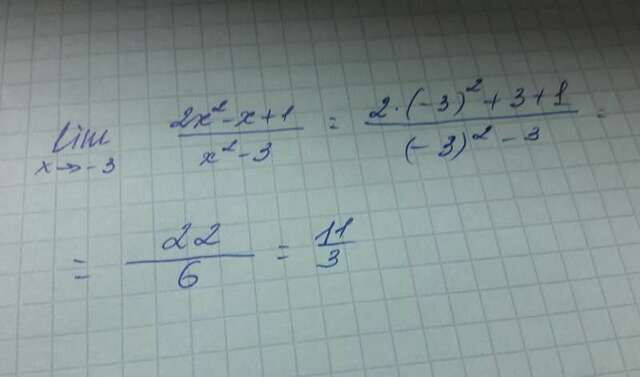 lim 2x² - x + 1 / x² - 3 = 2·(-3)² + 3 + 1 / (-3)² - 3 =
x→-3
= 22 / 6 = 11 / 3